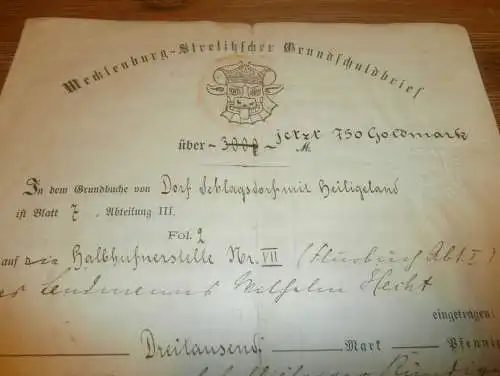 Mecklenburg-Strelitzscher Grundschuldbrief
über ~ 3000 ~ jetzt 750 Goldmark
M.
In dem Grundbuche von Dorf Schlagsdorf mit Heiligeland
ist Blatt 7, Abteilung III.
Fol. 2
auf die Halbhufnerstelle Nr. VII (Flurbuch Abt. I)
des Landmanns Wilhelm Hecht
eingetragen:
Dreitausend Mark Pfennig